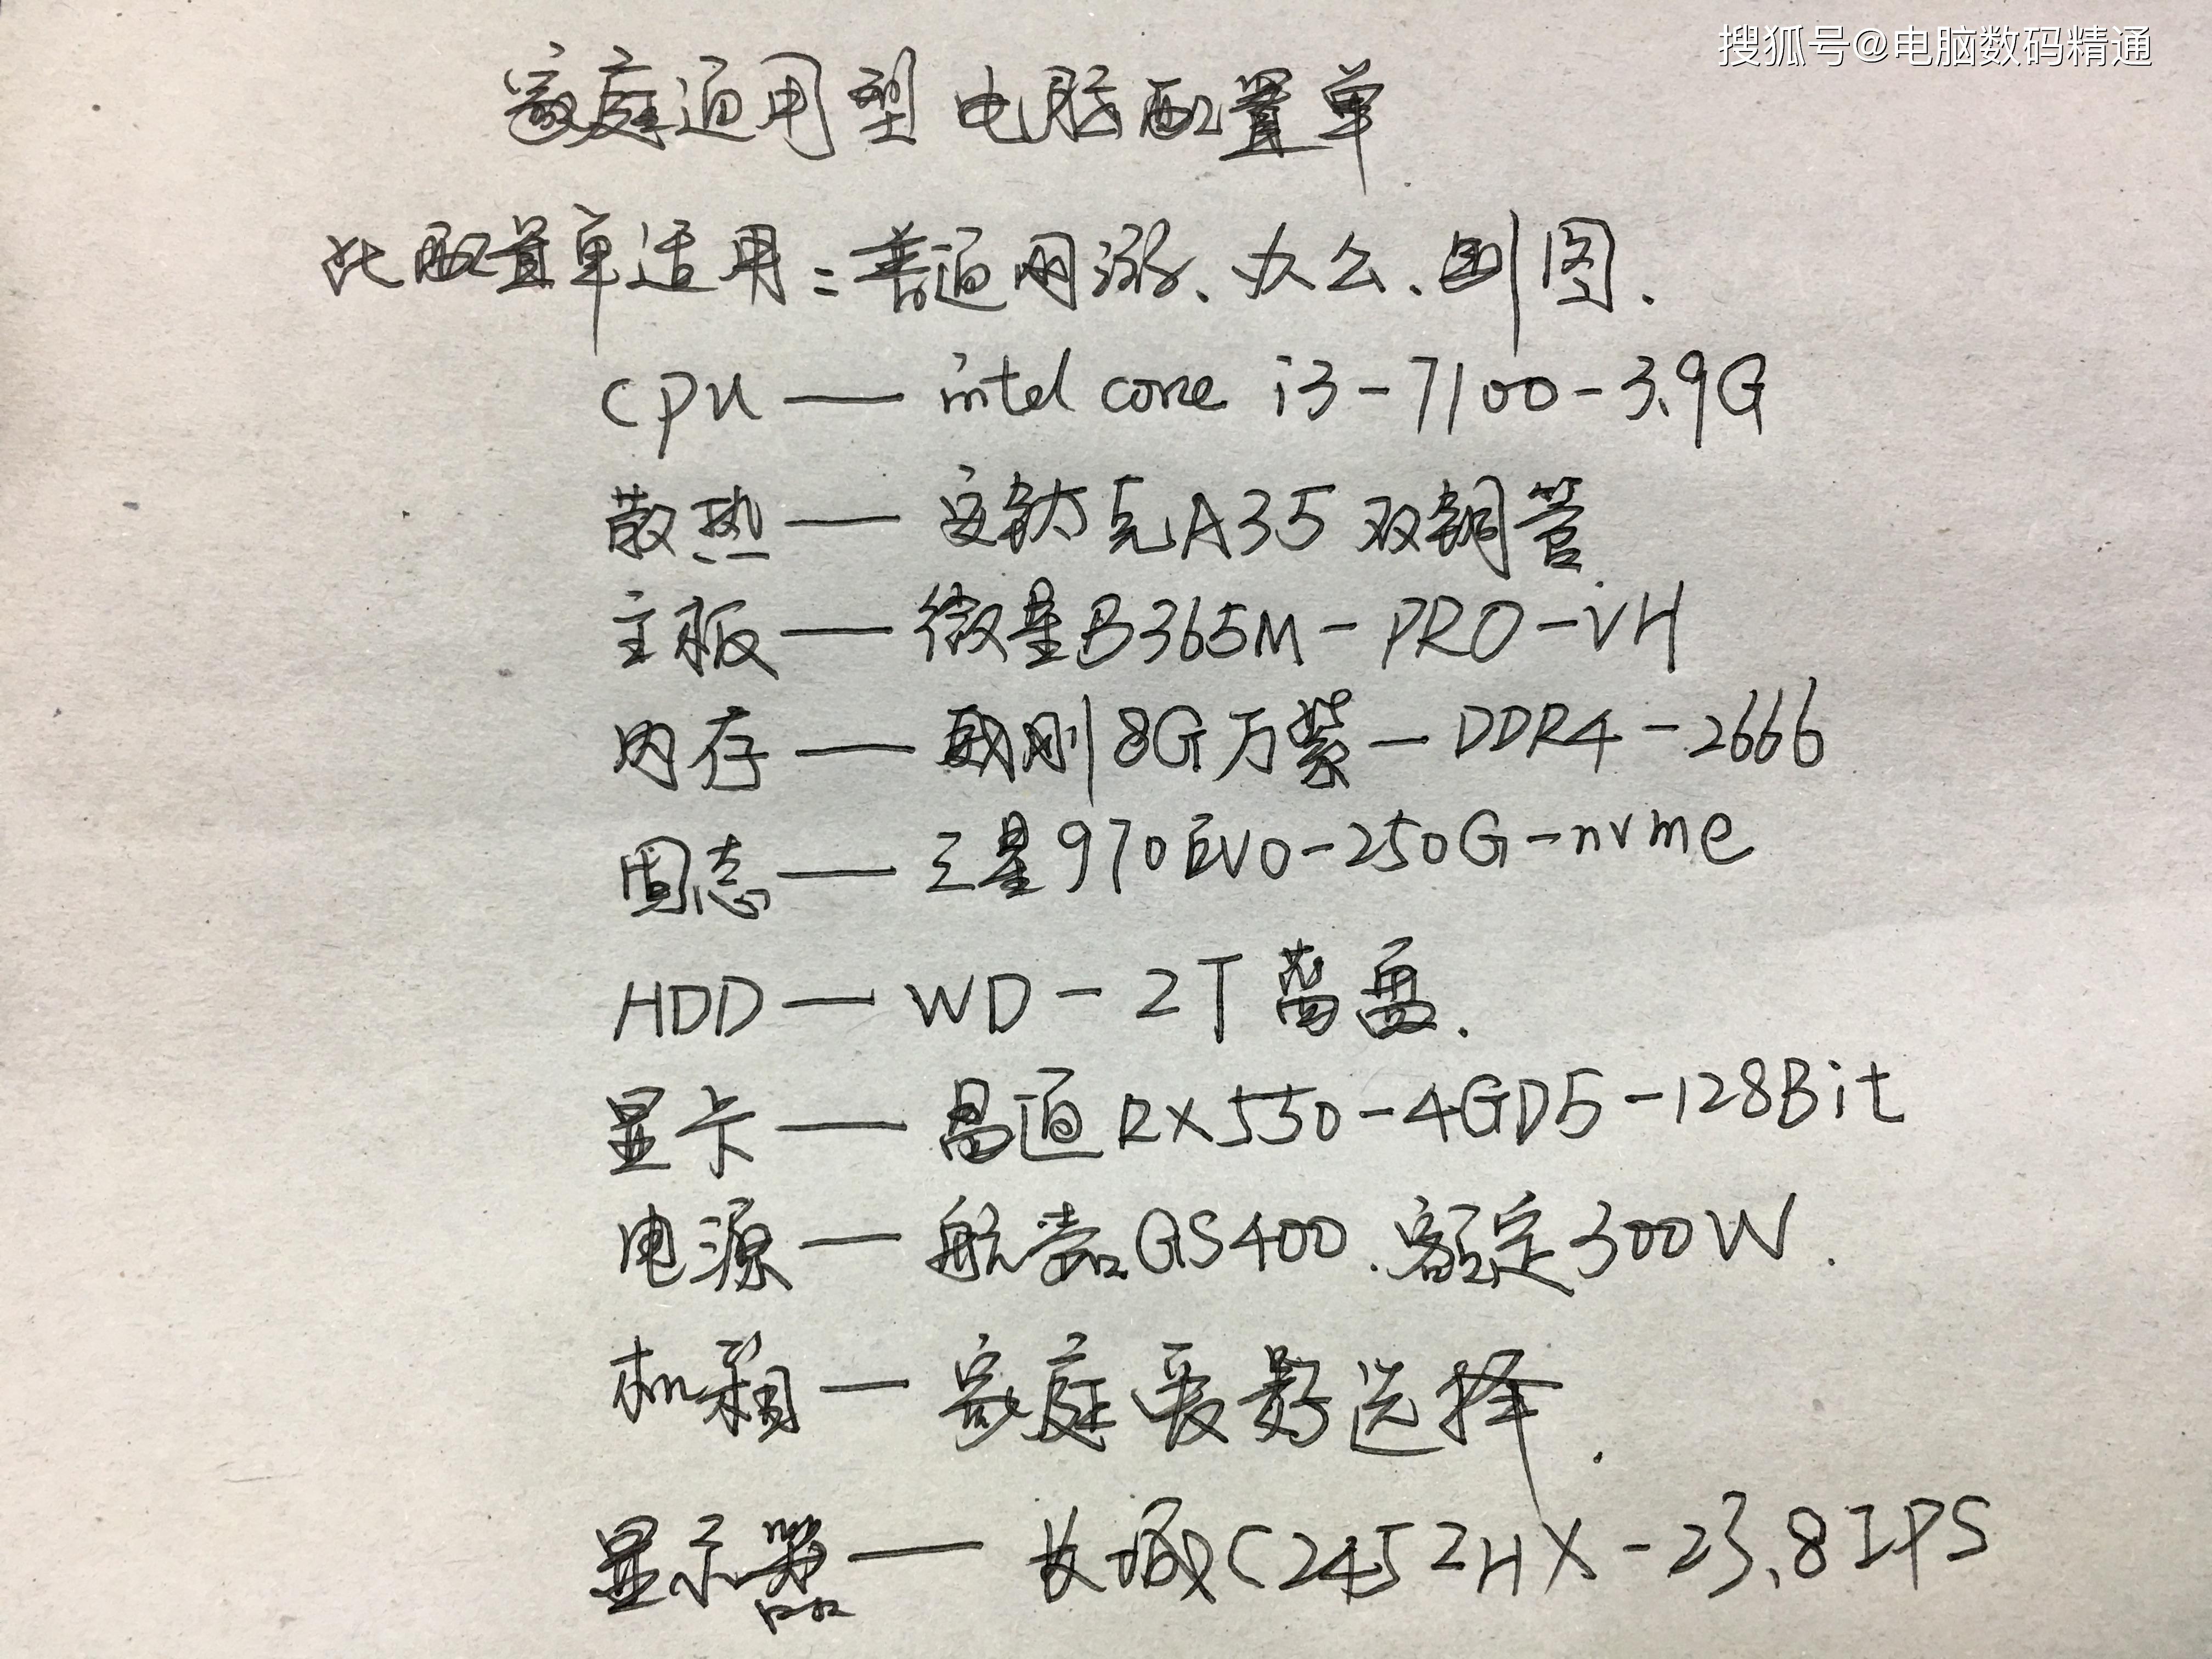 搜狐号@电脑数码精通
家庭通用型电脑配置单
此配置单适用：普通网游、办公、制图.
CPU — intel core i3-7100-3.9G
散热 — 安钛克A35双铜管
主板 — 微星B365M-PRO-VH
内存 — 8G万紫-DDR4-2666
固态 — 三星970EVO-250G-nvme
HDD — WD-2T
显卡 — RX550-4GD5-128Bit
电源 — 航嘉GS400.额定300W.
机箱 — 家庭爱好选择.
显示器 — C2452HX-23.8IPS